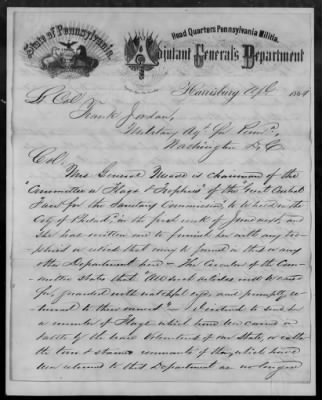 State of Pennsylvania.
Head Quarters Pennsylvania Militia.
Adjutant General's Department
Harrisburg 1864
Lt Col.
Frank Jordan,
Military Agt for Penna,
Washington D.C.
Col.
Mrs General Meade is chairman of the
"Committee on Flags & Trophies" of the Great Central
Fair for the Sanitary Commission, to be held in the
City of Philada, in the first week of June next, and
She has written me to furnish her with any tro-
phies or relics that may be found in this or any
other Department here - The Circular of the Com-
mittee states that "All such articles will be cared
for, guarded with watchful eye, and promptly re-
turned to their owners" - I intend to send her
a number of Flags which have been carried in
battle by the brave Volunteers of our State, or rather
the torn & stained remnants of Flags which have
been returned to this Department as no longer